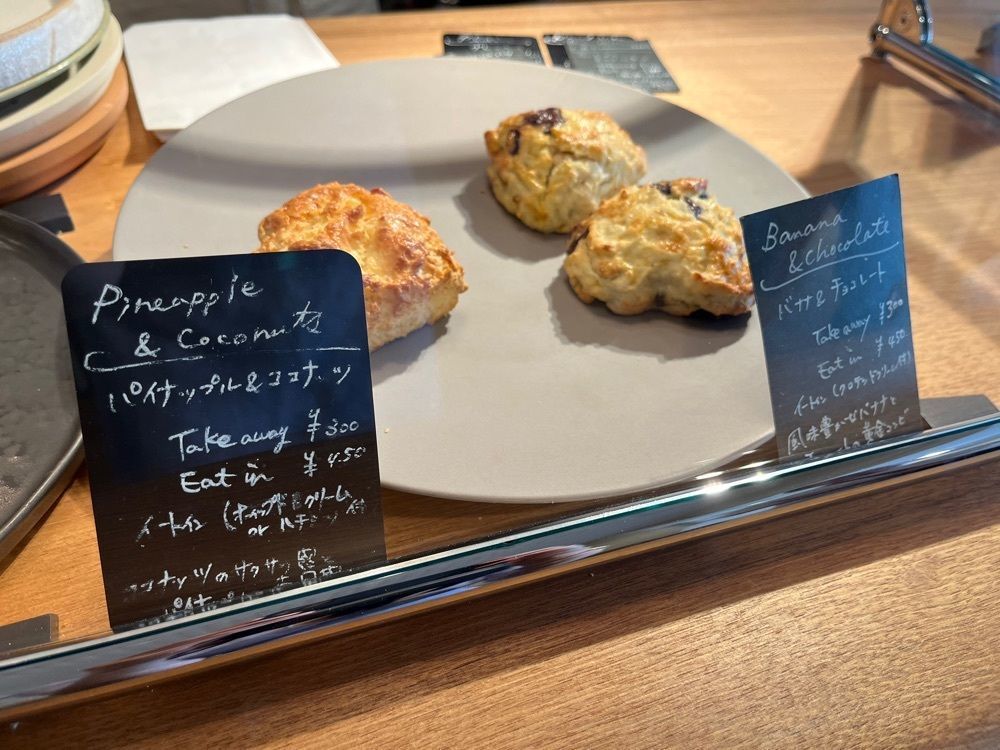 Pineapple
& Coconuts
パイナップル&ココナッツ
Take away ¥300
Eat in ¥450
イートイン (ホイップドクリーム
or ハチミツ付
ココナッツのサクサク
パイナップル
Banana
& chocolate
バナナ&チョコレート
Take away ¥300
Eat in ¥450
イートイン (クロテッドクリーム付)
風味豊かなバナナと
の黄金コンビ